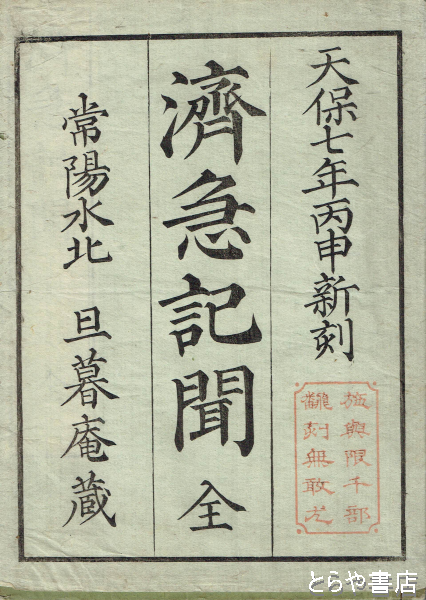 天保七年丙申新刻
施與限千部
飜刻無敢禁
濟急記聞 全
常陽水北 旦暮庵蔵
とらや書店